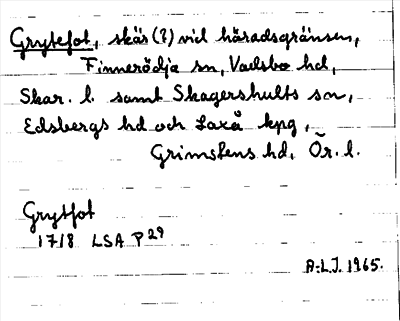 Grytefot, skäs (?) vid häradsgränsen,
Finnerödja sn, Vadsbo hd,
Skar. l. samt Skagershults sn,
Edsbergs hd och Laxå kpg,
Grimstens hd, Ör. l.
Grytfot
1718 LSA P29
A:LJ. 1965.